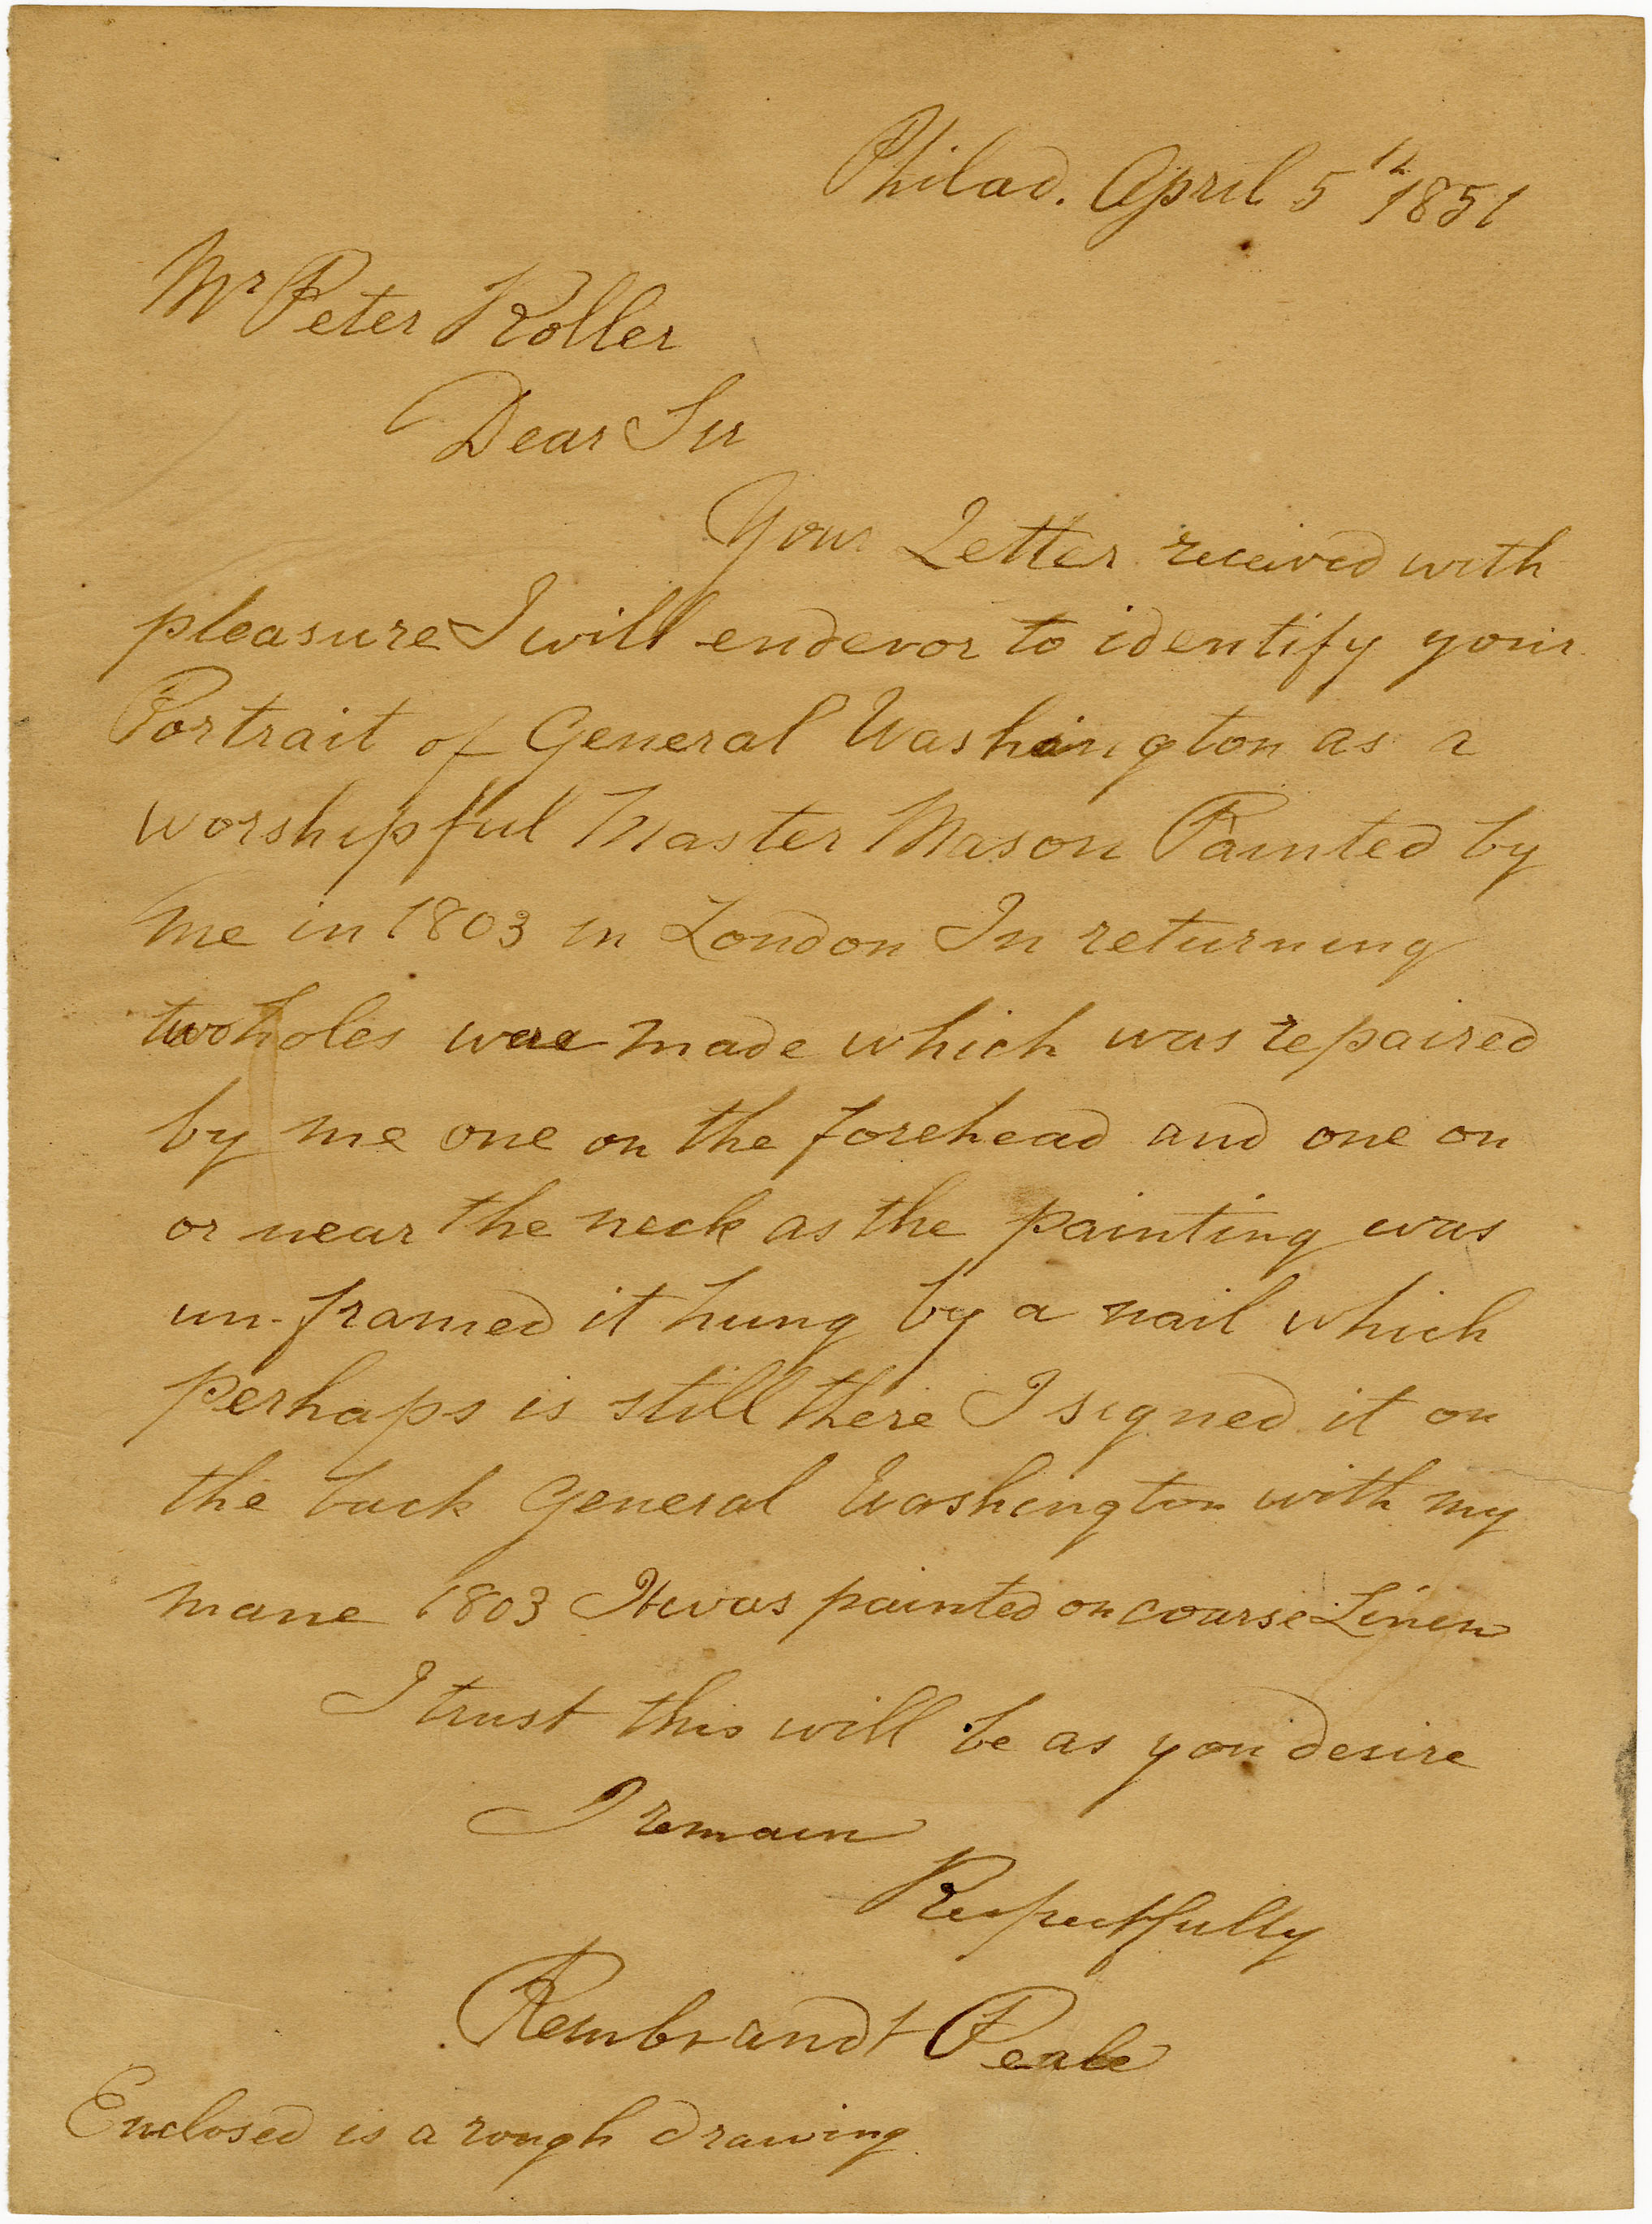 Philad. April 5th 1851
Mr Peter Koller
Dear Sir
Your Letter received with
pleasure I will endevor to identify your
Portrait of General Washington as a
worshipful Master Mason Painted by
me in 1803 in London In returning
two holes were made which was repaired
by me one on the forehead and one on
or near the neck as the painting was
un-framed it hung by a nail which
perhaps is still there I signed it on
the back General Washington with my
mane 1803 It was painted on course Linen
I trust this will be as you desire
I remain
Respectfully
Rembrandt Peale
Enclosed is a rough drawing